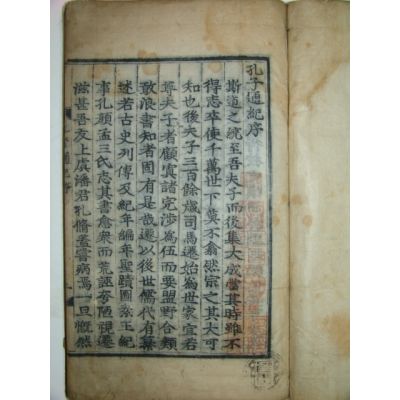 孔子通紀序
斯道之統至吾夫子而後集大成當其時雖不
得志卒使千萬世下莫不翕然宗之其大可
知也後夫子三百餘歲司馬遷始爲世家宜若
尊夫子者顧實諸定涉爲伍而要盟野合類
敢浪書知者固有是哉遷以後世儒代有纂
述若古史列傳及紀年編年聖蹟圖素王紀
事孔顔孟三氏志其書愈衆而荒誕夸陋視遷
滋甚吾友上虞潘君孔脩蓋嘗病焉一旦慨然